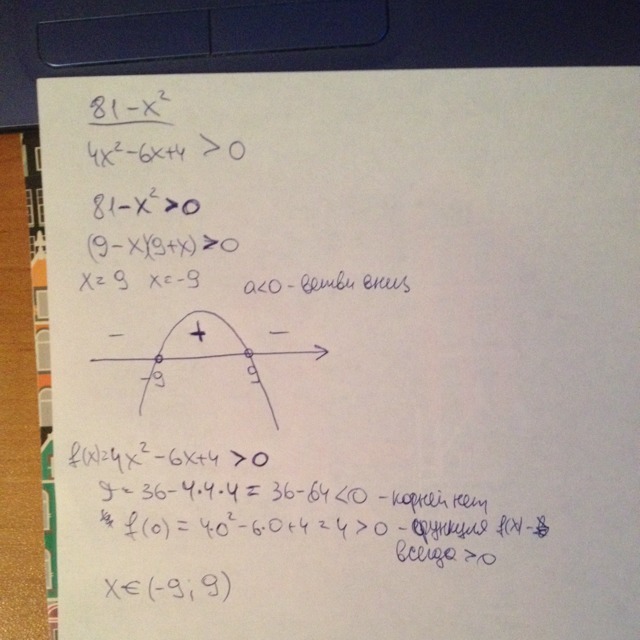 81-x²
4x²-6x+4 >0
81-x²>0
(9-x)(9+x)>0
x=9 x=-9 a<0 - ветви вниз
- + -
-9 9
f(x)=4x²-6x+4 >0
D = 36-4·4·4 = 36-64<0 - корней нет
f(0) = 4·0²-6·0+4=4>0 - функция f(x) -
всегда >0
x∈(-9; 9)